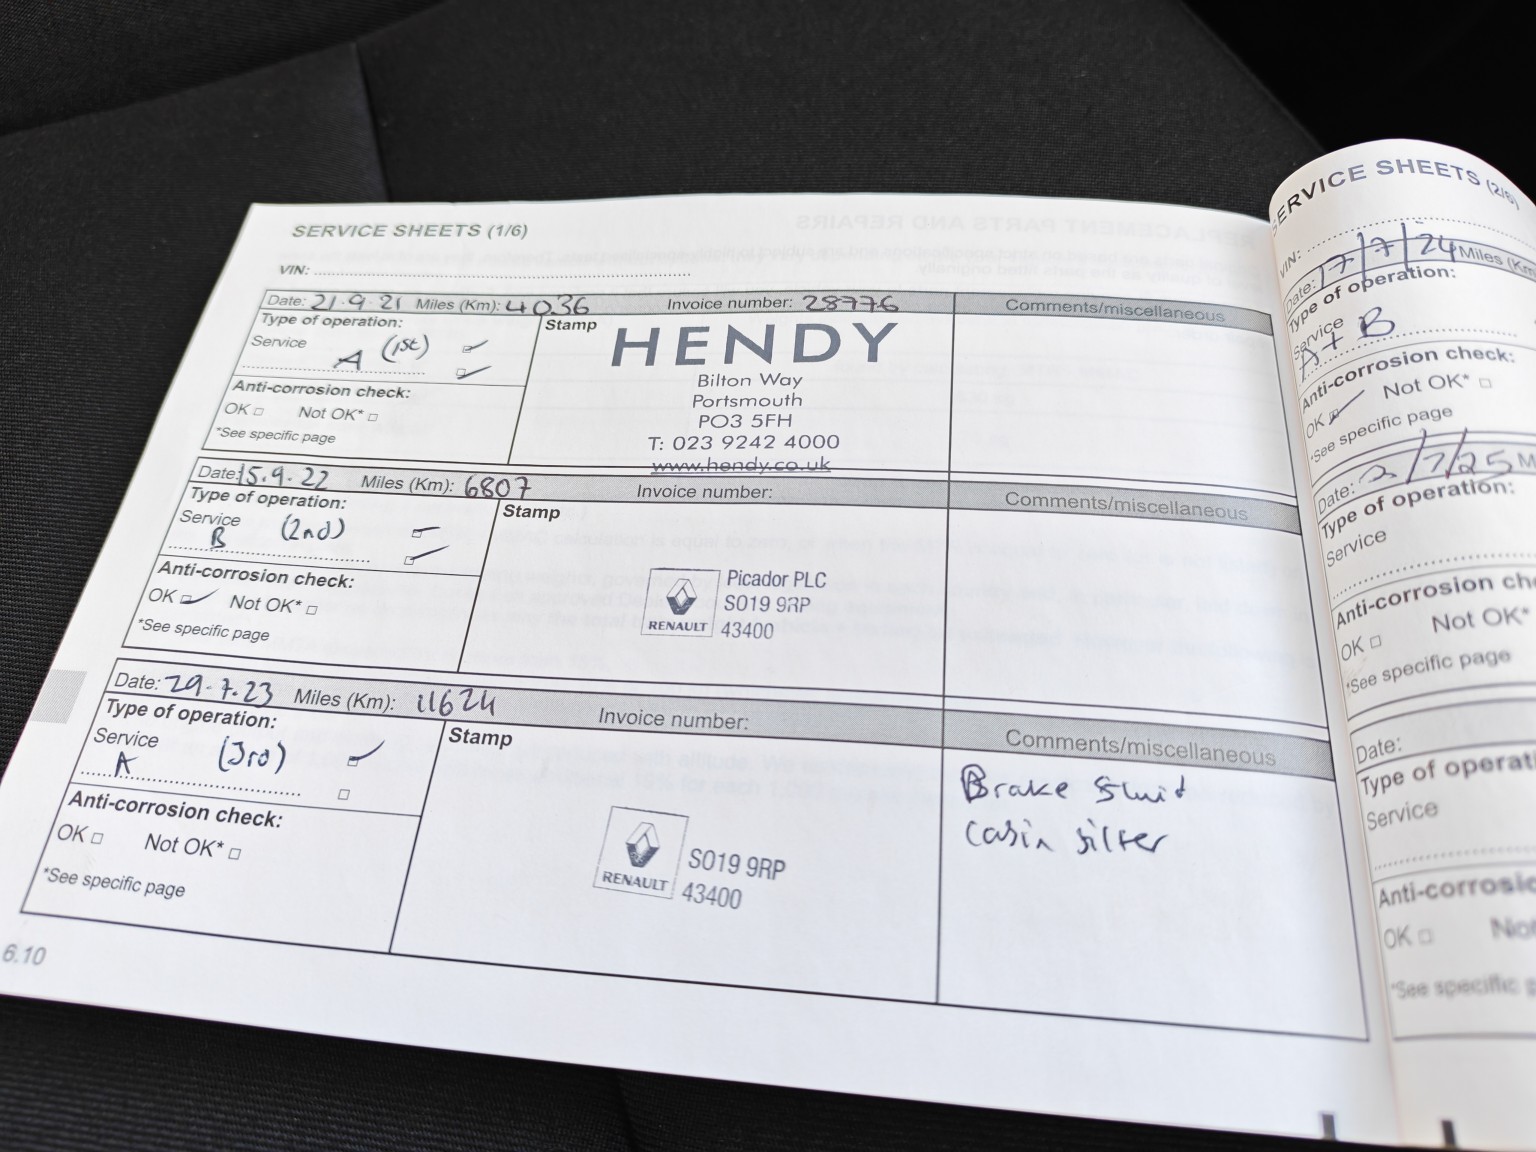 SERVICE SHEETS (1/6)
VIN:
Date: 21.9.21 Miles (Km): 4036 Invoice number: 28776 Comments/miscellaneous
Type of operation:
Service A (1st)
Anti-corrosion check:
OK Not OK*
*See specific page
Stamp
HENDY
Bilton Way
Portsmouth
PO3 5FH
T: 023 9242 4000
www.hendy.co.uk
Date: 15.9.22 Miles (Km): 6807 Invoice number: Comments/miscellaneous
Type of operation:
Service (2nd)
B
Anti-corrosion check:
OK Not OK*
*See specific page
Stamp
RENAULT
Picador PLC
SO19 9RP
43400
Date: 29.7.23 Miles (Km): 11624 Invoice number: Comments/miscellaneous
Type of operation:
Service (3rd)
A
Anti-corrosion check:
OK Not OK*
*See specific page
Stamp
RENAULT
SO19 9RP
43400
Brake fluid
Cabin filter
6.10
SERVICE SHEETS (2/6)
VIN:
Date: 17/7/24 Miles (Km
Type of operation:
Service
A + B
Anti-corrosion check:
OK Not OK*
*See specific page
Date: 2/7/25 M
Type of operation:
Service
Anti-corrosion ch
OK Not OK*
*See specific page
Date:
Type of operat
Service
Anti-corrosio
OK Not
*See specific p